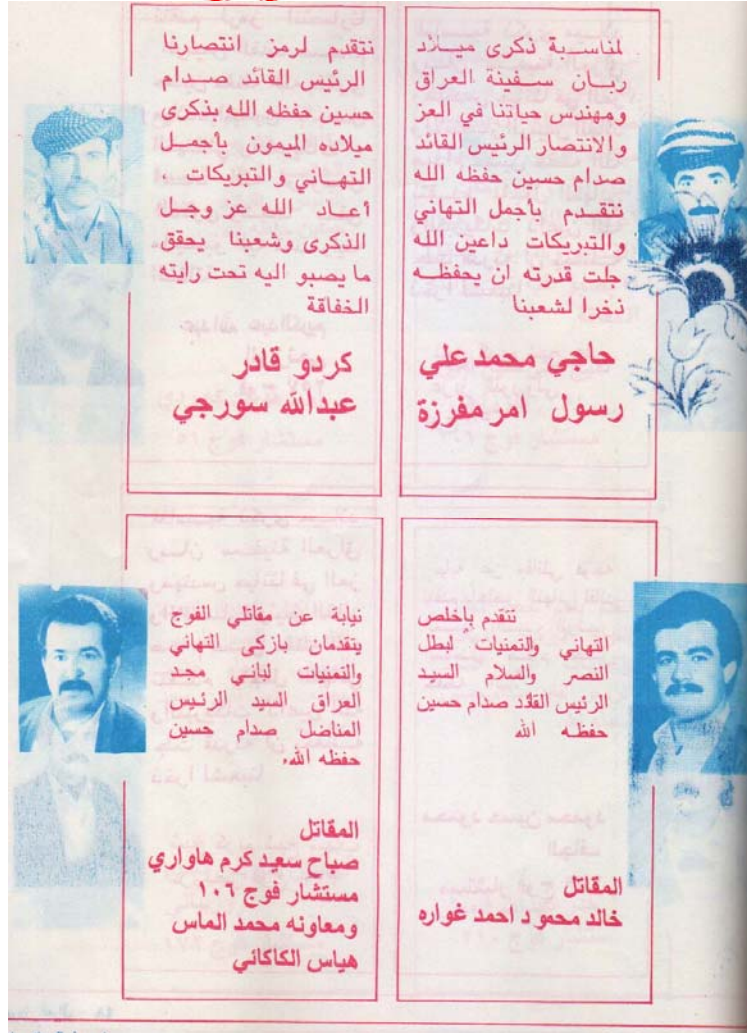 لمناسبة ذكرى ميلاد
ربان سفينة العراق
ومهندس حياتنا في العز
والانتصار الرئيس القائد
صدام حسين حفظه الله
نتقدم بأجمل التهاني
والتبريكات داعين الله
جلت قدرته ان يحفظه
ذخرا لشعبنا
حاجي محمد علي
رسول امر مفرزة
نتقدم لرمز انتصارنا
الرئيس القائد صدام
حسين حفظه الله بذكرى
ميلاده الميمون بأجمل
التهاني والتبريكات ،
أعاد الله عز وجل
الذكرى وشعبنا يحقق
ما يصبو اليه تحت رايته
الخفاقة
كردو قادر
عبدالله سورجي
نتقدم بإخلص
التهاني والتمنيات لبطل
النصر والسلام السيد
الرئيس القائد صدام حسين
حفظه الله
المقاتل
خالد محمود احمد غواره
نيابة عن مقاتلي الفوج
يتقدمان بازكى التهاني
والتمنيات لباني مجد
العراق السيد الرئيس
المناضل صدام حسين
حفظه الله.
المقاتل
صباح سعيد كرم هاواري
مستشار فوج ١٠٦
ومعاونه محمد الماس
هياس الكاكائي